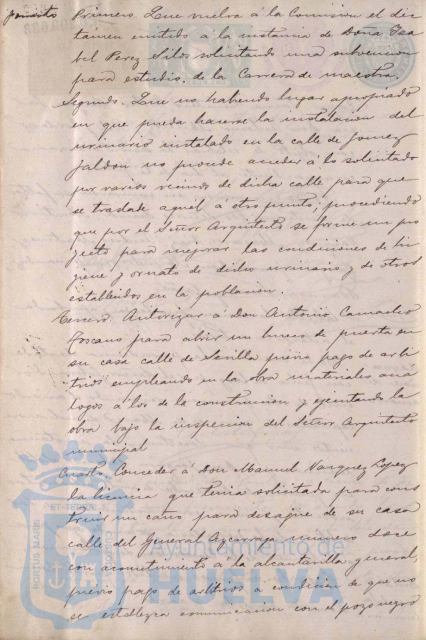 Primero. Que vuelva á la Comision el dic-
tamen emitido á la instancia de Doña Isa
bel Perez Silos solicitando una subvencion
para estudio de la Carrera de maestra.
Segundo. Que no habiendo lugar apropiado
en que pueda hacerse la instalacion del
urinario instalado en la calle de Gomez
Jaldon no procede acceder á lo solicitado
por varios vecinos de dicha calle para que
se traslade aquel á otro punto; procediendo
que por el Señor Arquitecto se forme un pro
yecto para mejorar las condiciones de hi
giene y ornato de dicho urinario y de otros
establecidos en la poblacion.
Tercero. Autorizar á Don Antonio Camacho
Toscano para abrir un hueco de puerta en
su casa calle de Sevilla previo pago de arbi
trios empleando en la obra materiales aná
logos á los de la construccion y ejecutando la
obra bajo la inspeccion del Señor Arquitecto
municipal
Cuarto. Conceder á Don Manuel Vazquez Lopez
la licencia que tenia solicitada para cons
truir un caño para desagüe de su casa
calle del General Azcarraga número doce
con acometimiento á la alcantarilla general,
previo pago de arbitrios á condicion de que no
se establezca comunicacion con el pozo negro
PORTUS MARIS ET TERRAE
Ayuntamiento de
HUELVA